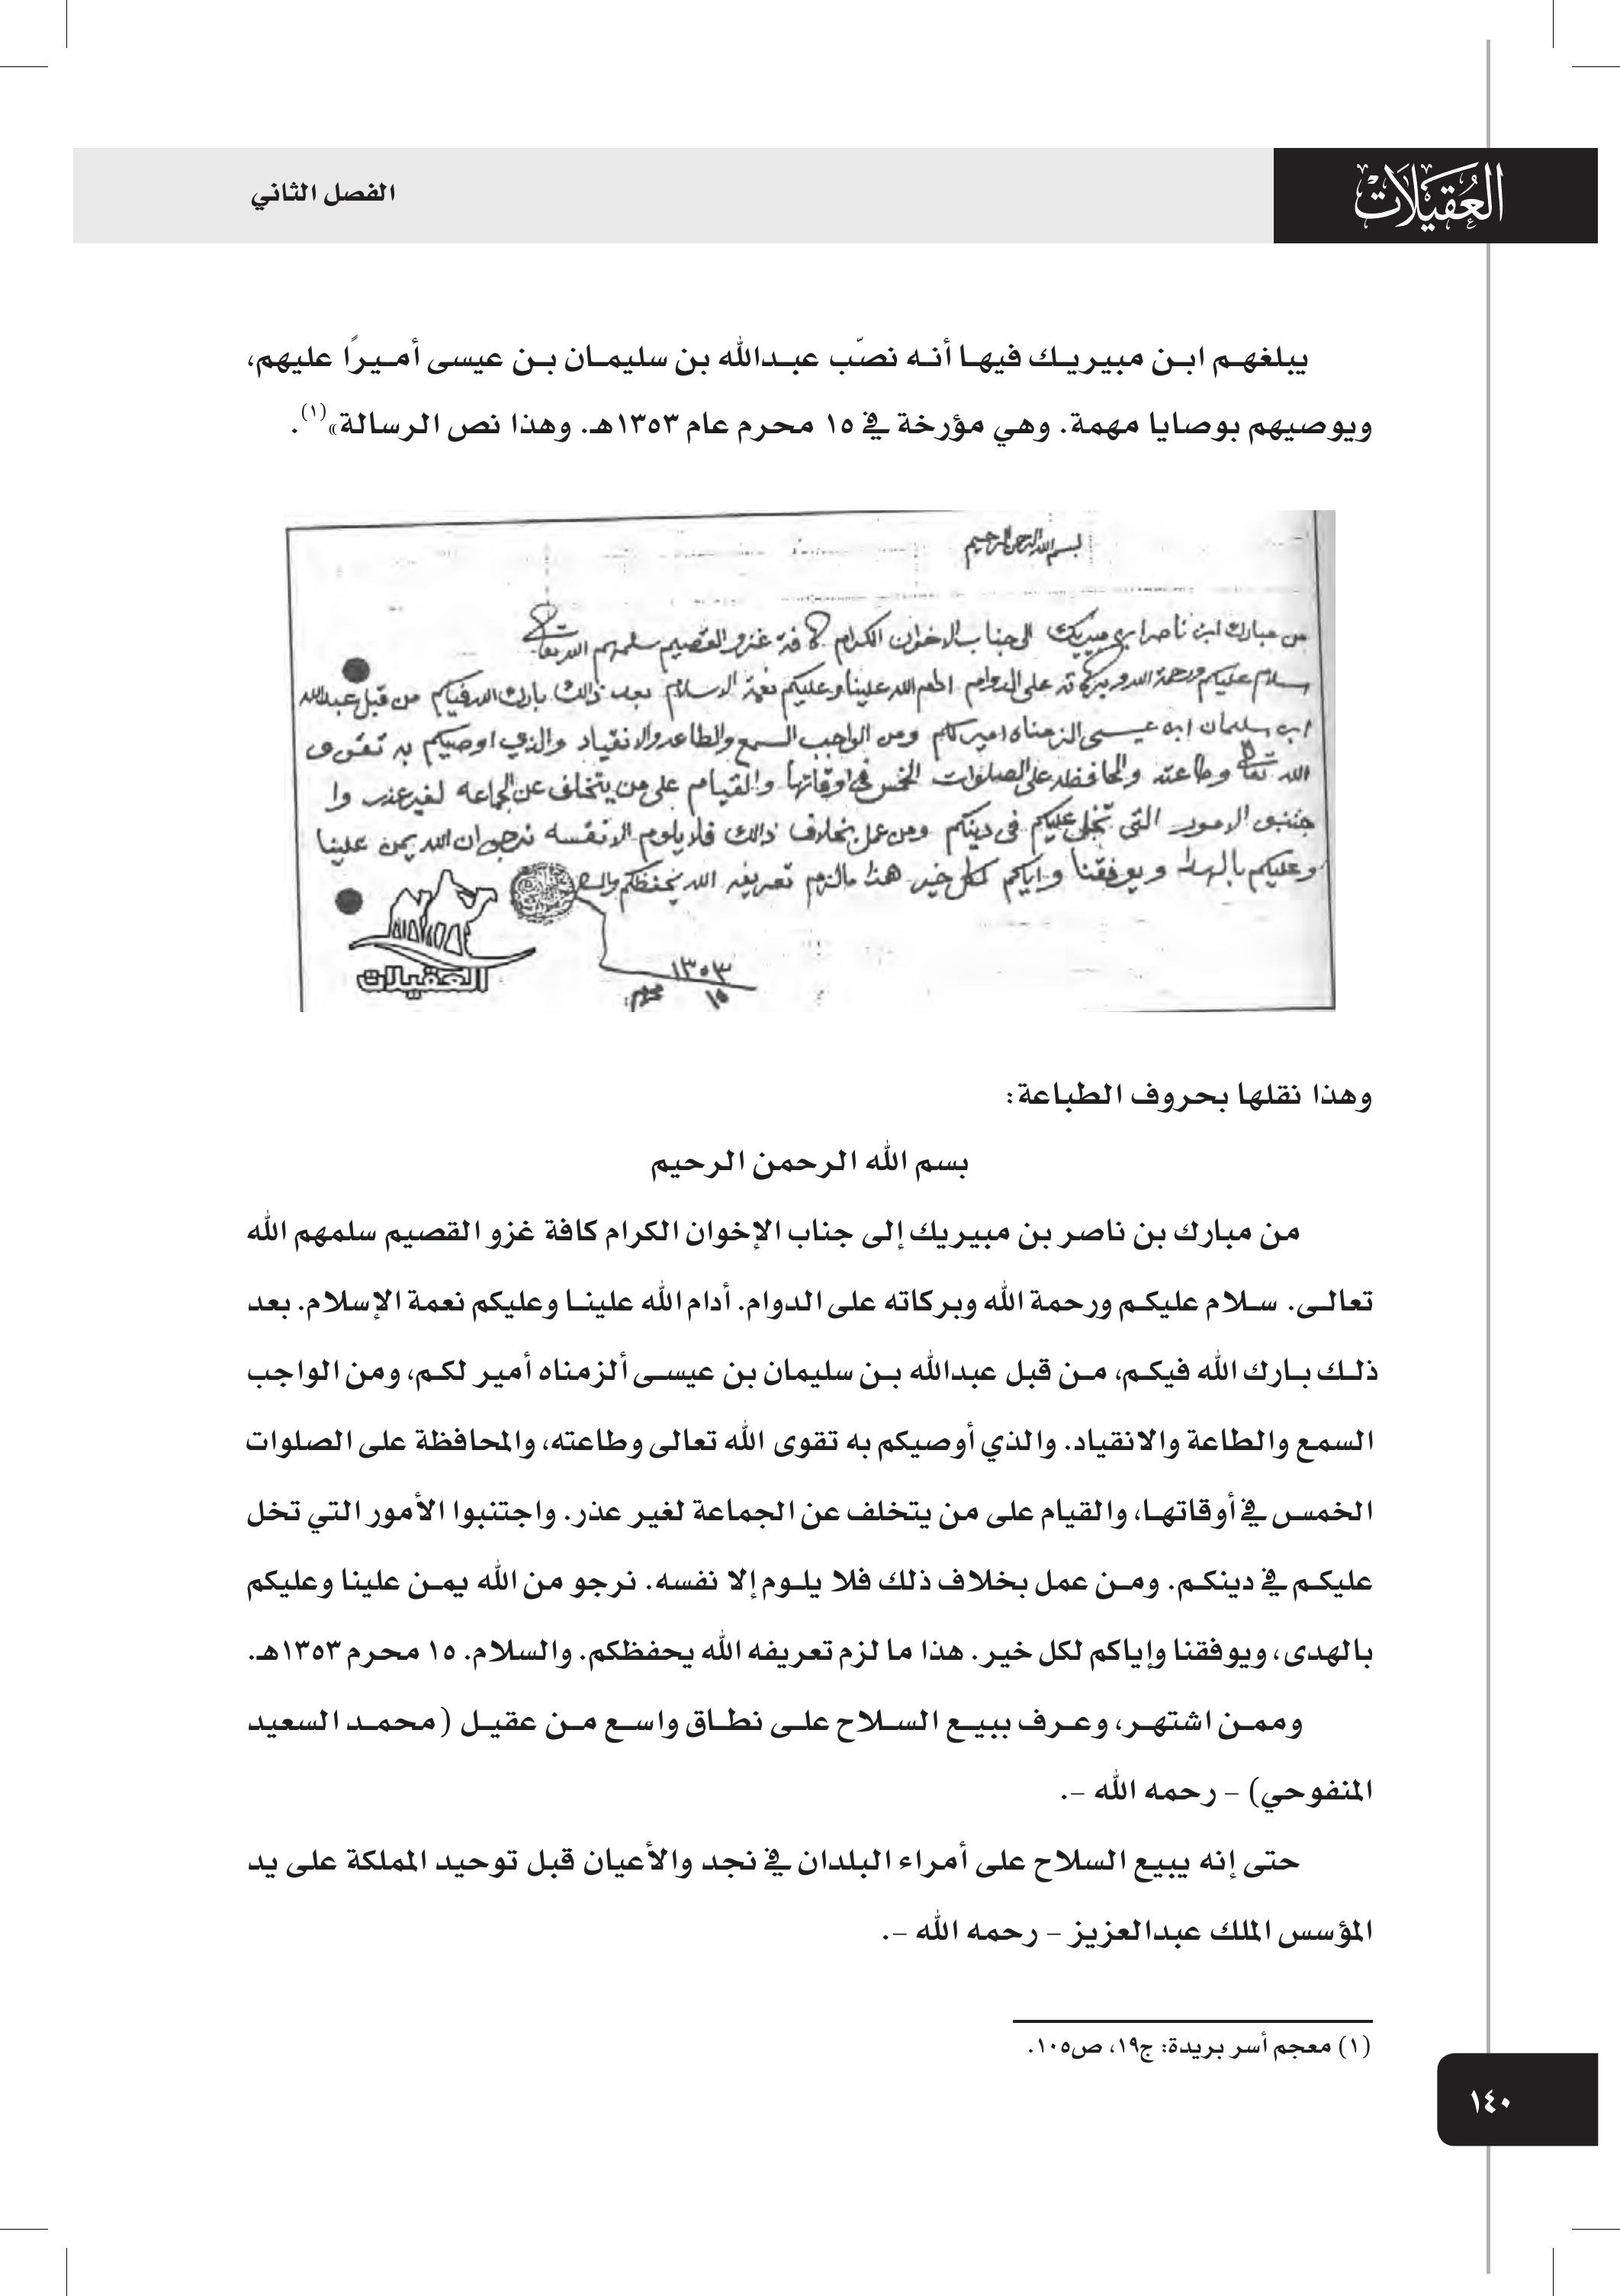 العُقَيْلَات
الفصل الثاني
يبلغهم ابن مبيريك فيها أنه نصّب عبدالله بن سليمان بن عيسى أميرًا عليهم،
ويوصيهم بوصايا مهمة. وهي مؤرخة في ١٥ محرم عام ١٣٥٣هـ. وهذا نص الرسالة»(١).
بسم الله الرحمن الرحيم
من مبارك ابن ناصر ابن مبيريك الى جناب الاخوان الكرام كافة غزو القصيم سلمهم الله تعالى
سلام عليكم ورحمة الله وبركاته على الدوام ادام الله علينا وعليكم نعمة الاسلام بعد ذالك بارك الله فيكم من قبل عبدالله
ابن سليمان ابن عيسى الزمناه امير لكم ومن الواجب السمع والطاعه والانقياد والذي اوصيكم به تقوى
الله تعالى وطاعته والمحافظه على الصلوات الخمس في اوقاتها والقيام على من يتخلف عن الجماعه لغير عذر وا
جتنبو الامور التي تخل عليكم في دينكم ومن عمل بخلاف ذالك فلا يلوم الا نفسه نرجو ان الله يمن علينا
وعليكم بالهدا ويوفقنا واياكم لكل خير هذا مالزم تعريفه الله يحفظكم والسلام
١٣٥٣
١٥ محرم
العقيلات
وهذا نقلها بحروف الطباعة:
بسم الله الرحمن الرحيم
من مبارك بن ناصر بن مبيريك إلى جناب الإخوان الكرام كافة غزو القصيم سلمهم الله
تعالى. سلام عليكم ورحمة الله وبركاته على الدوام. أدام الله علينا وعليكم نعمة الإسلام. بعد
ذلك بارك الله فيكم، من قبل عبدالله بن سليمان بن عيسى ألزمناه أمير لكم، ومن الواجب
السمع والطاعة والانقياد. والذي أوصيكم به تقوى الله تعالى وطاعته، والمحافظة على الصلوات
الخمس في أوقاتها، والقيام على من يتخلف عن الجماعة لغير عذر. واجتنبوا الأمور التي تخل
عليكم في دينكم. ومن عمل بخلاف ذلك فلا يلوم إلا نفسه. نرجو من الله يمن علينا وعليكم
بالهدى، ويوفقنا وإياكم لكل خير. هذا ما لزم تعريفه الله يحفظكم. والسلام. ١٥ محرم ١٣٥٣هـ.
وممن اشتهر، وعرف ببيع السلاح على نطاق واسع من عقيل (محمد السعيد
المنفوحي) – رحمه الله –.
حتى إنه يبيع السلاح على أمراء البلدان في نجد والأعيان قبل توحيد المملكة على يد
المؤسس الملك عبدالعزيز – رحمه الله –.
(١) معجم أسر بريدة: ج١٩، ص١٠٥.
١٤٠